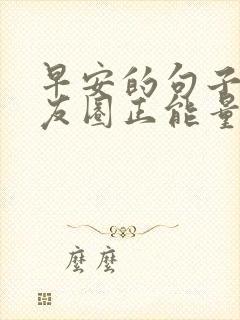 早安的句子
友圈正能量
麽麽